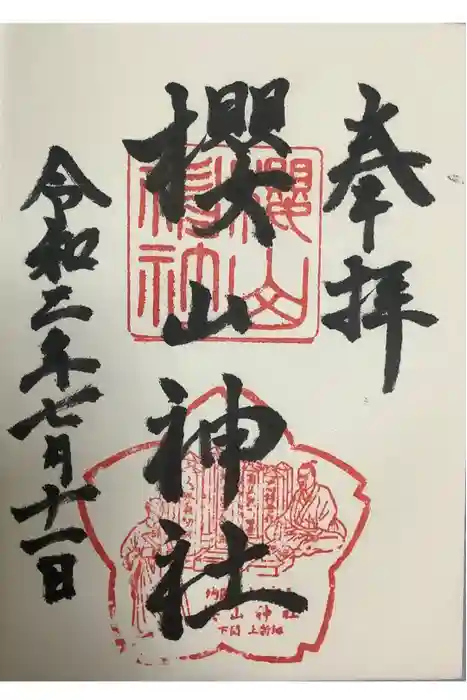 奉拝
櫻山神社
令和二年七月十一日
櫻山
神社
山神社
下関 上新地